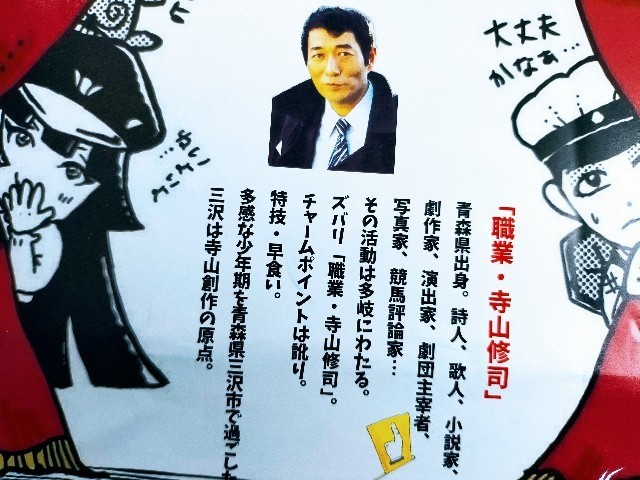 「職業・寺山修司」
青森県出身。詩人、歌人、小説家、
劇作家、演出家、劇団主宰者、
写真家、競馬評論家…
その活動は多岐にわたる。
ズバリ「職業・寺山修司」。
チャームポイントは訛り。
特技・早食い。
多感な少年期を青森県三沢市で過ごした
三沢は寺山創作の原点。
大丈夫
かなぁ…